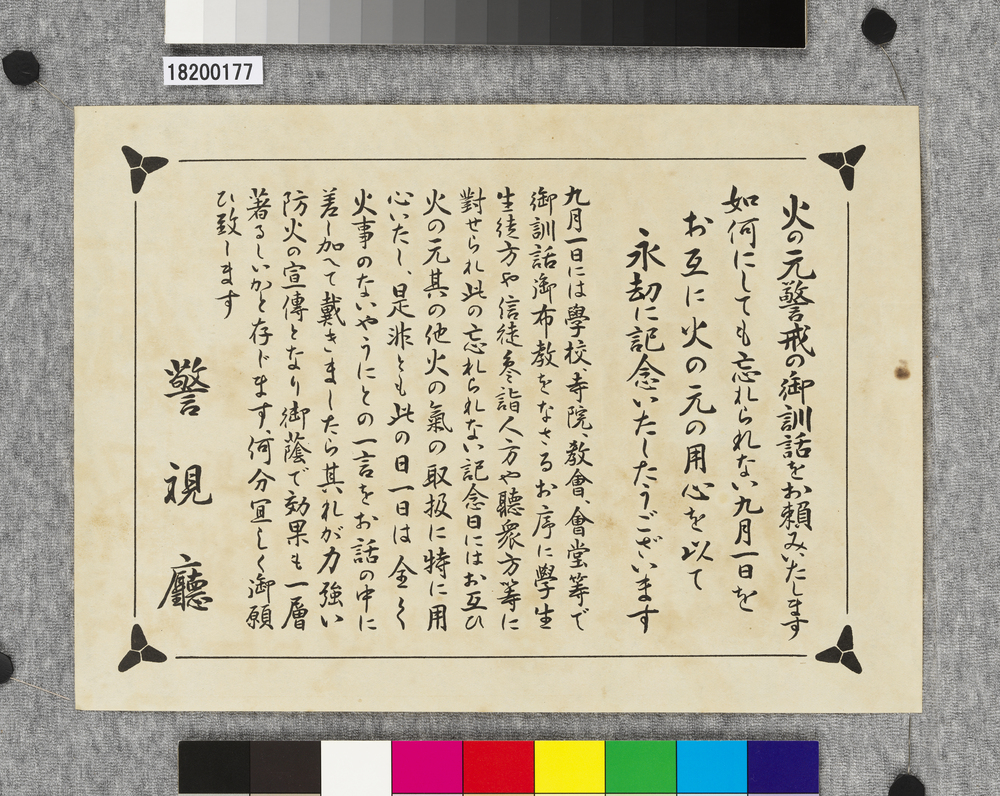 18200177
火の元警戒の御訓話をお頼みいたします
如何にしても忘れられない九月一日を
お互に火の元の用心を以て
永劫に記念いたしたうございます
九月一日には學校、寺院、教會、會堂等で
御訓話御布教をなさるお序に學生
生徒方や信徒參詣人方や聽衆方等に
對せられ此の忘れられない記念日にはお互ひ
火の元其の他火の氣の取扱に特に用
心いたし、是非とも此の日一日は全く
火事のないやうにとの一言をお話の中に
差し加へて戴きましたら其れが力強い
防火の宣傳となり御蔭で効果も一層
著るしいかと存じます、何分宜しく御願
ひ致します
警視廳